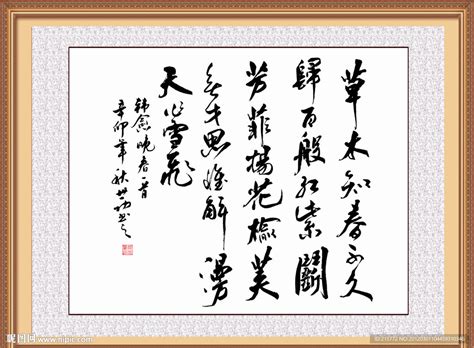 草木知春不久
歸百般红紫鬭
芳菲楊花榆荚
无才思惟解漫
天作雪飛
韩愈晚春一首
辛卯年秋
昵图网 www.nipic.com